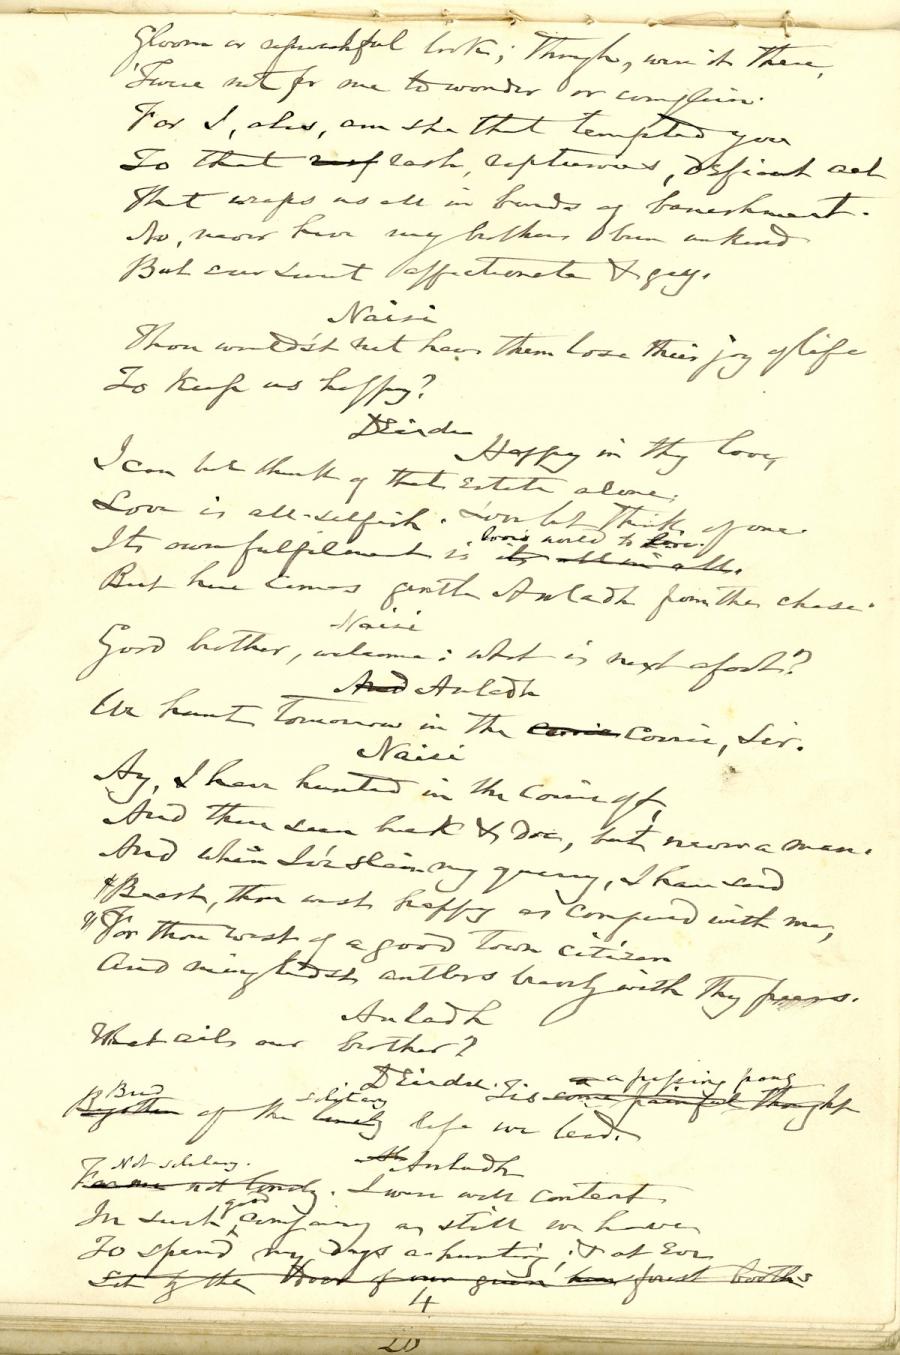 Gloom or reproachful look; Though, were it there,
'Twere not for me to wonder or complain.
For I, alas, am she that tempted you
To that rash, rapturous, defiant act
That wraps us all in bonds of banishment.
No, never have my brothers been unkind
But ever sweet affectionate & gay.
Naisi
Thou wouldst not have them lose their joy of life
To keep us happy?
Deirdre
Happy in thy love,
I can but think of that Estate alone;
Love is all-selfish. Love but thinks of one.
love's world to
Its own fulfilment is its all in all.
But here comes gentle Anladh from the chase.
Naisi
Good brother, welcome: what is next afoot?
And Anladh
We hunt tomorrow in the corrie Corrie, Sir.
Naisi
Ay, I have hunted in the Corrie oft,
And there seen buck & doe, but never a man.
And when I've slain my quarry, I have said
"Beast, thou wast happy as compared with me,
"For thou wast of a good town citizen
And mingledst antlers bravely with thy peers.
Anladh
What ails our brother?
Deirdre. a a passing pang
'Tis some painful thought
Bred solitary
Begotten of the lonely life we lead.
Anladh
Not solitary.
not lonely. I were well content
good
In such company as still we have
To spend my days a-hunting; & at Eve
Sit by the door of our green forest booths
4
20